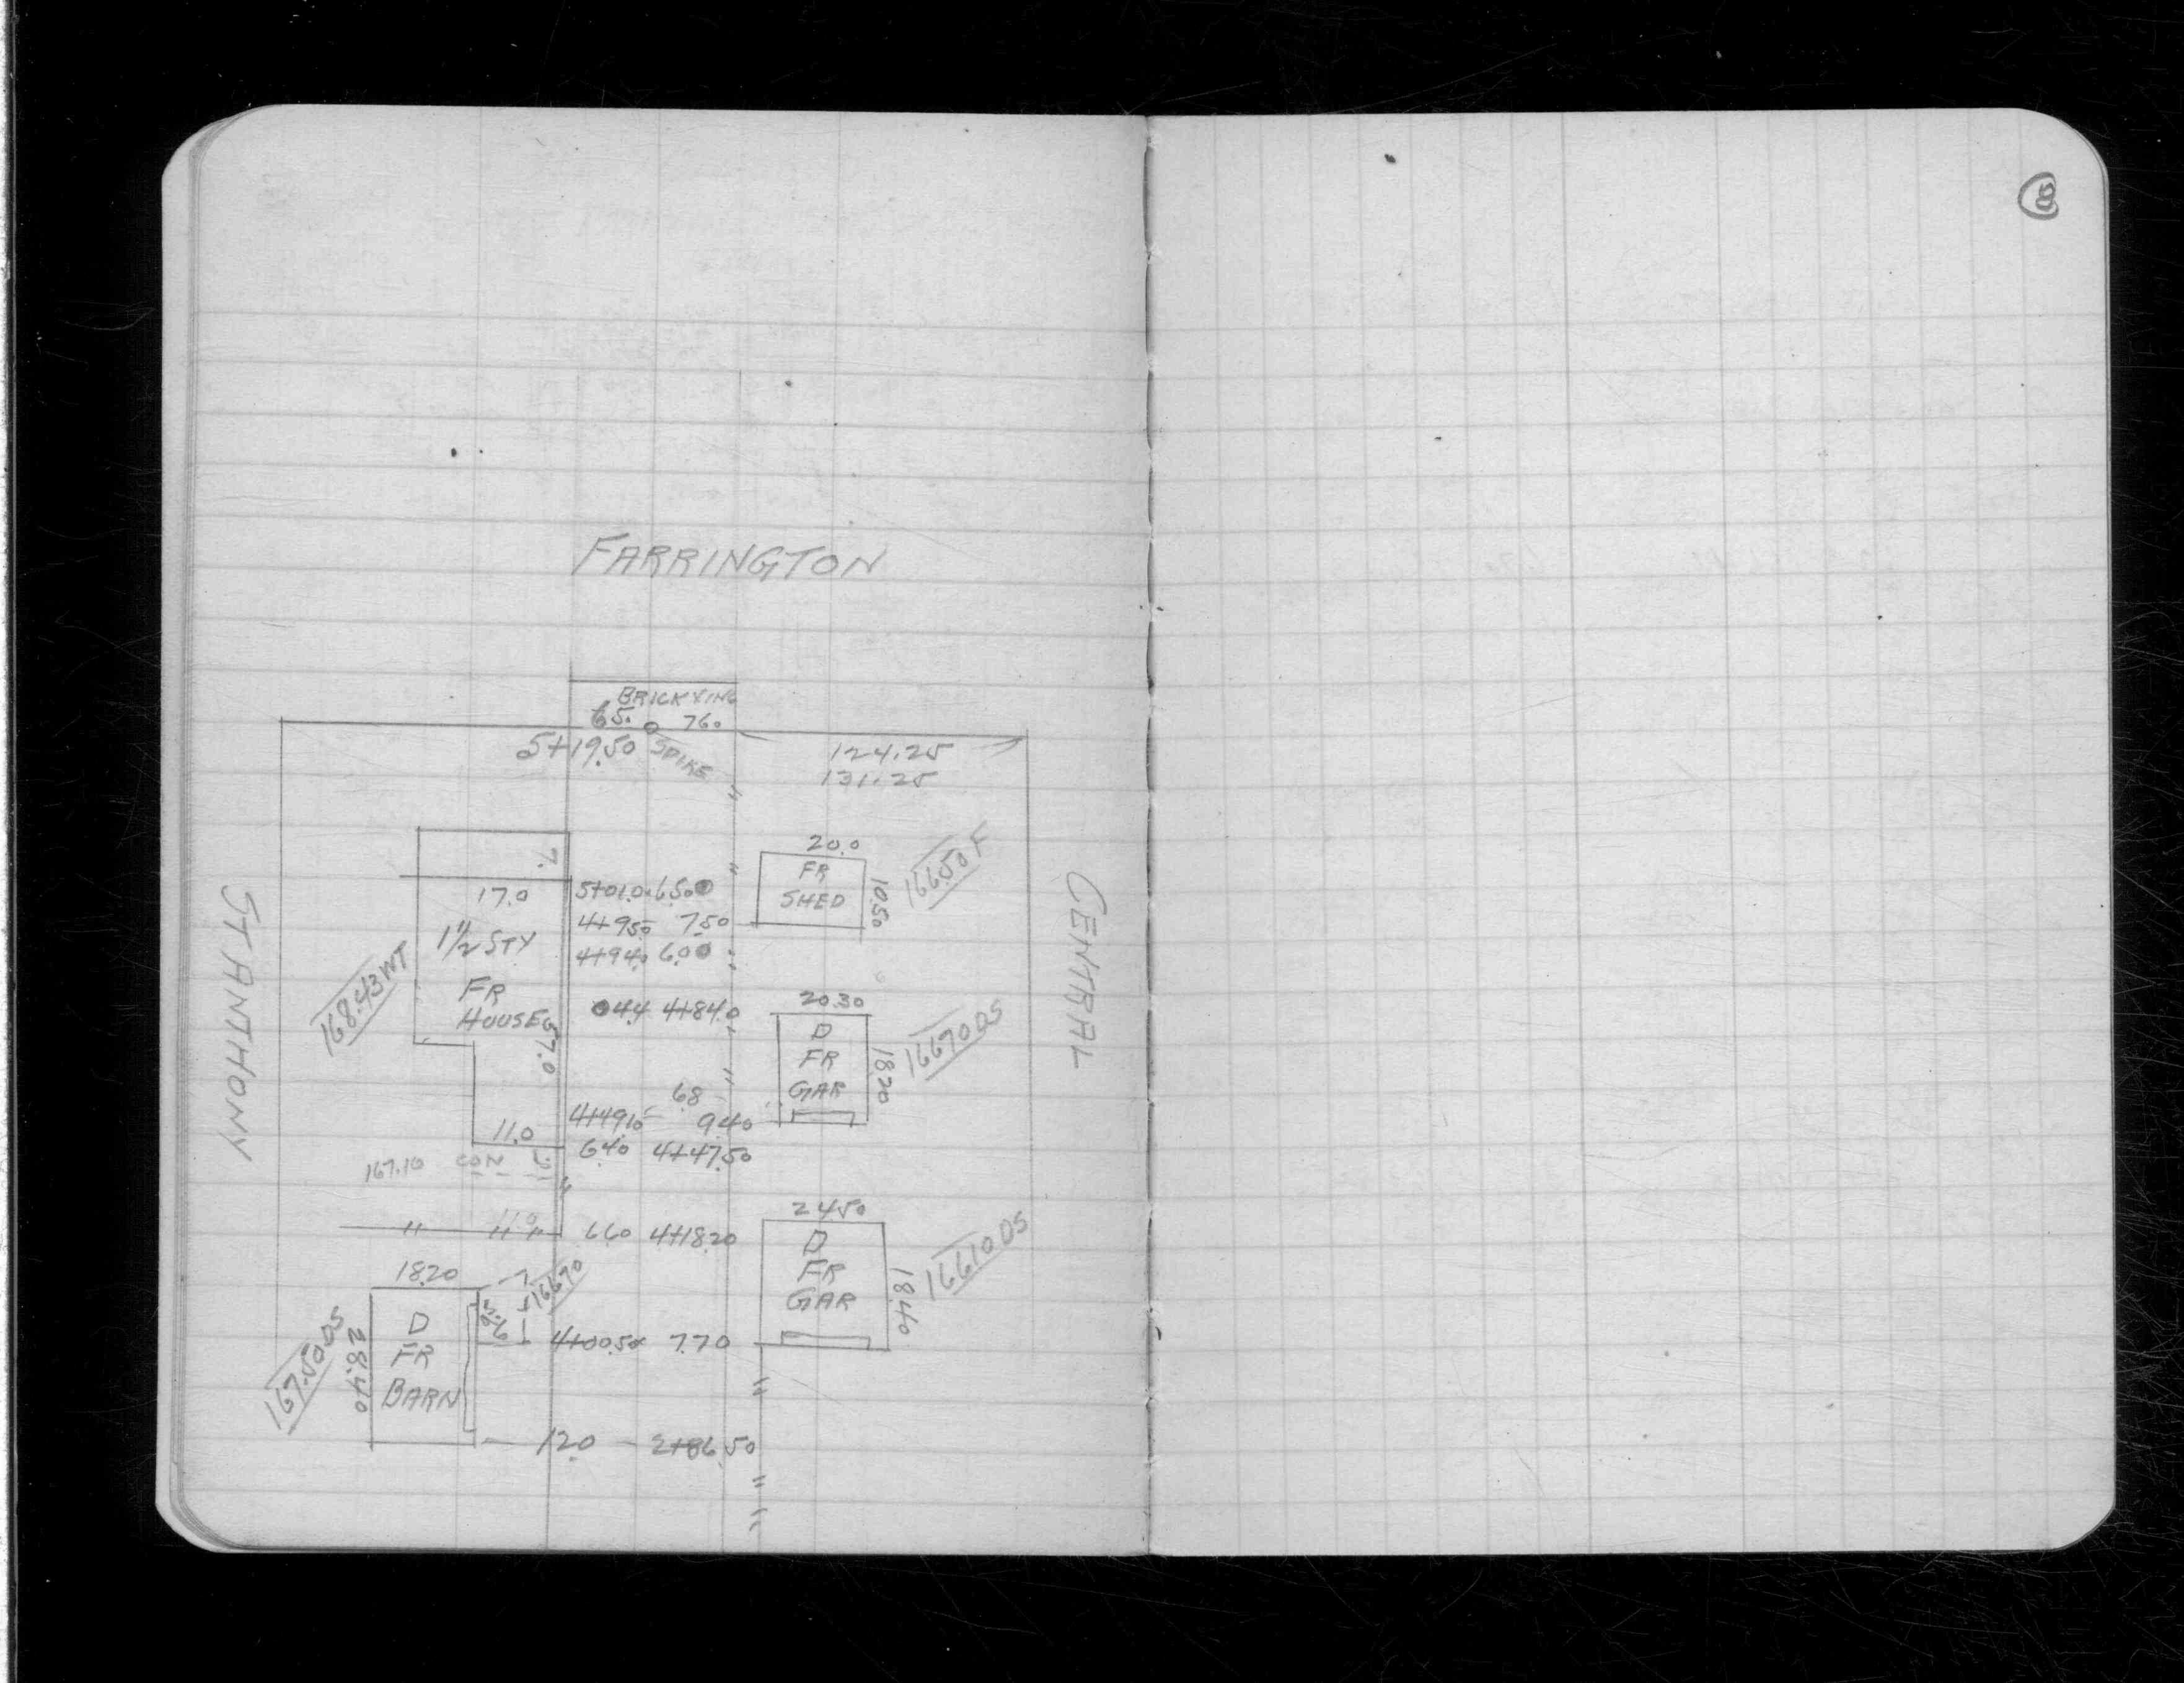 8
FARRINGTON
BRICK XING
65. 76.
5+19.50 SPIKE
124.25
131.25
7.
20.0
FR
SHED
10.50
166.50 F
17.0
1 1/2 STY
FR
HOUSE
168.43 WT
5+01.0 6.50
4+95.0 7.50
4+94.0 6.00
04.4 4+84.0
20.30
D
FR
GAR
18.20
166.70 DS
ST ANTHONY
CENTRAL
68
4+49.10 9.40
11.0
6.40 4+47.50
167.10 CON
11.0
" " " 6.60 4+18.20
24.50
D
FR
GAR
18.40
166.10 DS
18.20
D
FR
BARN
28.40
167.50 DS
166.70
4+00.50 7.70
12.0 2+86.50